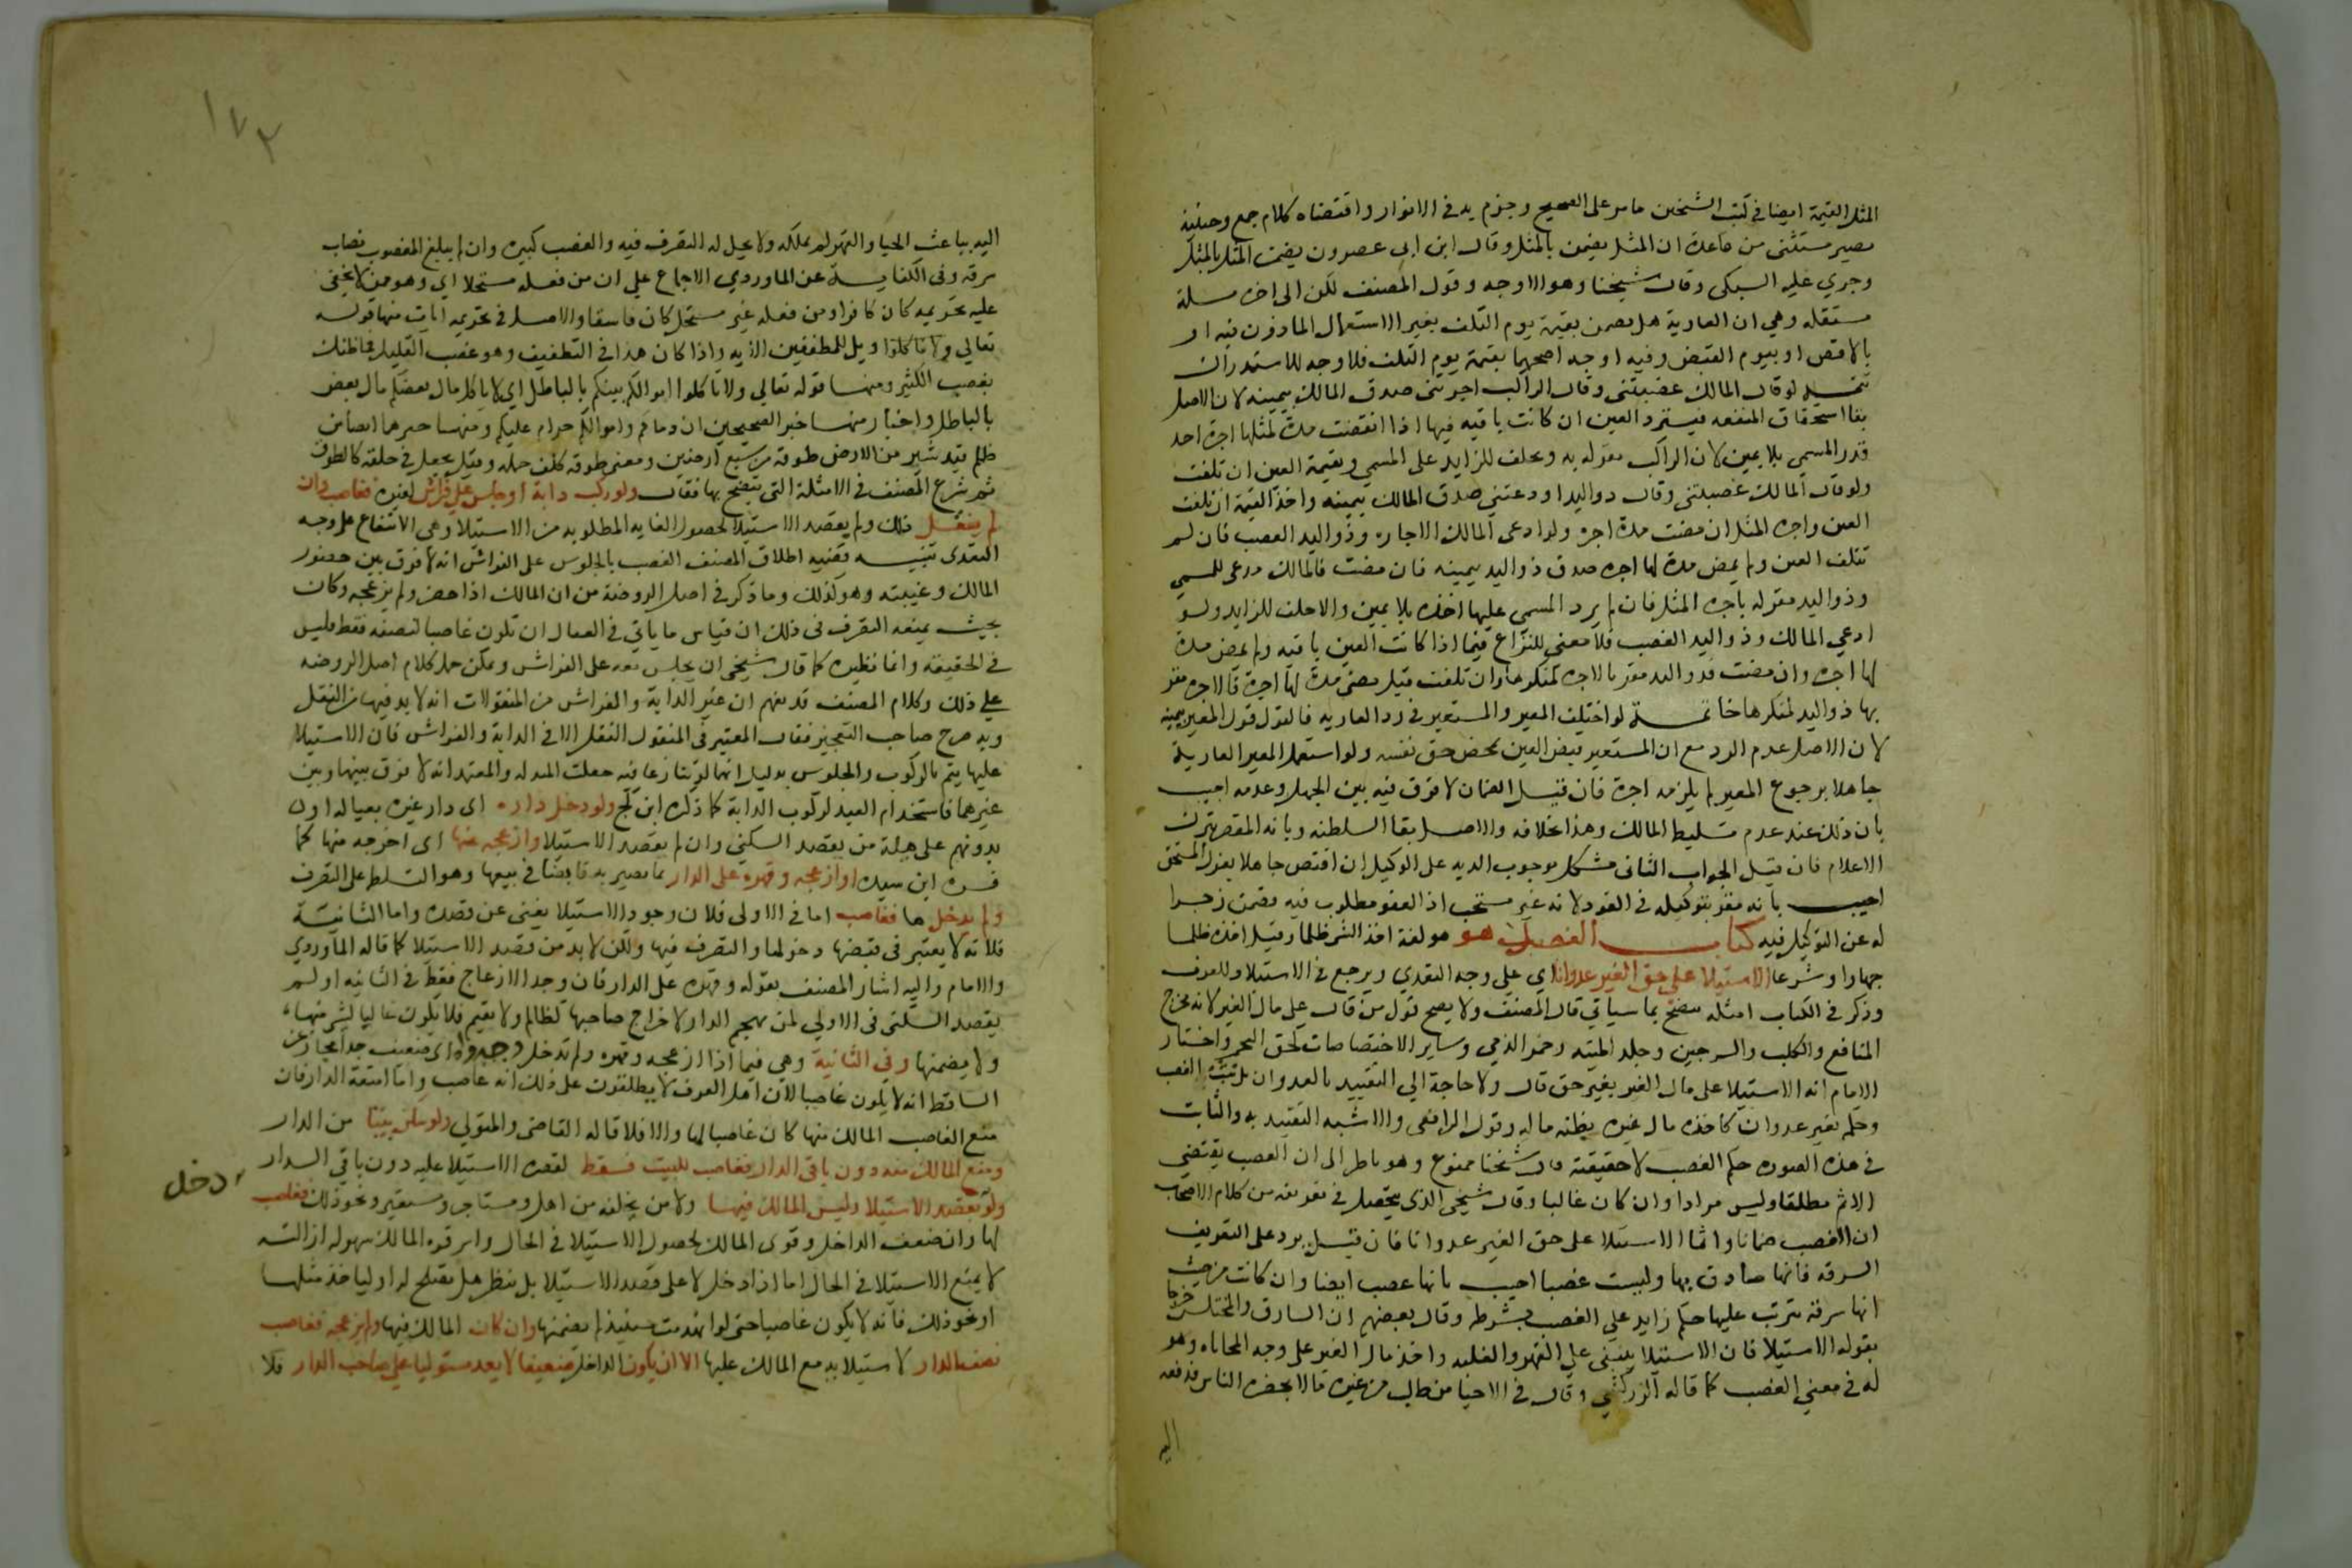 المثل القيمة ايضا في كتب الشيخين ما مر على الصحيح وجزم به في الانوار واقتضاه كلام جمع وحينئذ
يصير مستثنى من قاعدة ان المثل يضمن بالمثل وقال ابن ابي عصرون يضمن المثل بالمثل
وجري عليه السبكى وقال شيخنا وهو الاوجه وقول المصنف لكن الى اخره مسلة
مستقله وهي ان العارية هل تضمن بقيمة يوم التلف بغير الاستعمال الماذون فيه او
بالاقصى او بيوم القبض وفيه اوجه اصحها بقيمة يوم التلف فلا وجه للاستدراك
تتمه لو قال المالك غصبتنى وقال الراكب اجرتنى صدق المالك بيمينه لان الاصل
بقا استحقاق المنفعه فيسترد العين ان كانت باقيه فيها اذا انقضت مدة لمثلها اجرة اخذ
قدر المسمى بلا يمين لان الراكب مقر له به ويحلف للزايد على المسمى وبقيمة العين ان تلفت
ولو قال المالك غصبتنى وقال ذو اليد اودعتني صدق المالك بيمينه واخذ القيمة ان تلفت
العين واجره المثل ان مضت مدة اجره ولو ادعى المالك الاجاره وذو اليد الغصب فان لم
تتلف العين ولم يمض مدة لها اجره صدق ذو اليد بيمينه فان مضت فالمالك مدعى للمسمى
وذو اليد مقر له باجره المثل فان لم يزد المسمى عليها اخذه بلا يمين والا حلف للزايد ولو
ادعي المالك وذو اليد الغصب فلا معنى للنزاع فيما اذا كانت العين باقيه ولم يمض مدة
لها اجره وان مضت فذو اليد مقر بالاجره لمنكرها وان تلفت قبل مضى مدة لها اجرة فالاجره مقر
بها ذو اليد لمنكرها خاتمــة لو اختلف المعير والمستعير في رد العاريه فالقول قول المعير بيمينه
لان الاصل عدم الرد مع ان المستعير قبض العين لمحض حق نفسه ولو استعمل المعير العارية
جاهلا برجوع المعير لم يلزمه اجرة فان قيــل الضمان لا فرق فيه بين الجهل وعدمه اجيب
بان ذلك عند عدم تسليط المالك وهذا بخلافه والاصــل بقا السلطنه وبانه المقصر بترك
الاعلام فان قيــل الجواب الثانى مشكل بوجوب الديه على الوكيل ان اقتص جاهلا بعزل المستحق
اجيــب بانه مقصر بتوكيله في القود لانه غير مستحب اذ العفو مطلوب فيه فضمن زجرا
له عن التوكيل فيه كتاب الغصب هو هو لغة اخذ الشى ظلما وقيل اخذه ظلما
جهارا وشرعا الاستيلا على حق الغير عدوانا اي على وجه التعدي ويرجع في الاستيلا للعرف
وذكر في الكتاب امثله يتضح بما سياتي قال المصنف ولا يصح قول من قال على مال الغير لانه يخرج
المنافع والكلب والسرجين وجلد الميته وخمر الذمي وساير الاختصاصات كحق التحجر واختار
الامام انه الاستيلا على مال الغير بغير حق قال ولا حاجة الي التقييد بالعدوان بل يثبت الغصب
وحكمه بغير عدوان كاخذه مال غيره يظنه ماله وقول الرافعى والاشبه التقييد به والثابت
في هذه الصوره حكم الغصب لا حقيقته قال شيخنا ممنوع وهو ناظر الى ان الغصب يقتضي
الاثم مطلقا وليس مرادا وان كان غالبا وقال شيخى الذى يتحصل في تعريفه من كلام الاصحاب
ان الغصب ضمانا واثما الاستيلا على حق الغير عدوانا فان قيــل يرد على التعريف
السرقه فانها صادق بها وليست غصبا اجيب بانها غصب ايضا وان كانت من حيث
انها سرقة يترتب عليها حكم زايد على الغصب بشرطه وقال بعضهم ان السارق والمختلس خرجا
بقوله الاستيلا فان الاستيلا ينبنى على القهر والغلبه واخذ مال الغير على وجه المحاباه وهو
له فى معنى الغصب كما قاله الزركشي وقال في الاحيا من طلب من غيره مالا بحضره الناس فدفعه
اليه
١٧٣
اليه بباعث الحيا والقهر لم يملكه ولا يحل له التصرف فيه والغصب كبيره وان لم يبلغ المغصوب نصاب
سرقه وفى الكفايــة عن الماوردي الاجماع على ان من فعله مستحلا اي وهو ممن لا يخفى
عليه تحريمه كان كافرا ومن فعله غير مستحل كان فاسقا والاصل في تحريمه ايات منها قوله
تعالي ولا تاكلوا ويل للمطففين الايه واذا كان هذا في التطفيف وهو غصب القليل فما ظنك
بغصب الكثير ومنها قوله تعالي ولا تاكلوا اموالكم بينكم بالباطل اي لا ياكل مال بعضكم مال بعض
بالباطل واخبار منها خبر الصحيحين ان دماكم واموالكم حرام عليكم ومنها خبرهما ايضا من
ظلم قيد شبر من الارض طوقه من سبع ارضين ومعنى طوقه كلف حمله وقيل يجعل في حلقه كالطوق
ثم شرع المصنف في الامثلة التى يتضح بها فقال ولو ركب دابة او جلس على فراش لغيره فغاصب وان
لم ينقــل ذلك ولم يقصد الاستيلا لحصول الغايه المطلوبه من الاستيلا وهى الانتفاع على وجه
التعدى تنبيــه قضيه اطلاق المصنف الغصب بالجلوس على الفراش انه لا فرق بين حضور
المالك وغيبته وهو كذلك وما ذكر في اصل الروضة من ان المالك اذا حضر ولم يزعجه وكان
بحيث يمنعه التصرف فى ذلك ان قياس ما ياتي في العقار ان تكون غاصبا لنصفه فقط فليس
في الحقيقه وانما نظيره كما قال شيخى ان يجلس معه على الفراش ويمكن حمل كلام اصل الروضه
على ذلك وكلام المصنف قد يفهم ان غير الدابة والفراش من المنقولات انه لا بد فيها من النقل
وبه صرح صاحب التعجيز فقال المعتبر فى المنقول النقل الا في الدابة والفراش فان الاستيلا
عليها يتم بالركوب والجلوس بدليل انهما لو تنازعا فيه جعلت اليد له والمعتمد انه لا فرق بينها وبين
غيرهما فاستخدام العبد لركوب الدابة كما ذكره ابن كج ولو دخل داره اى دار غيره بعياله او
بدونهم على هيئة من يقصد السكنى وان لم يقصد الاستيلا وازعجه عنها اى اخرجه منها كما
فسره ابن سيده او ازعجه وقهره على الدار بما يصير به قابضا في بيعها وهو التسلط على التصرف
ولم يدخل ها فغاصب اما فى الاولى فلان وجود الاستيلا يغنى عن قصده واما الثانيــة
فلانه لا يعتبر في قبضها دخولها والتصرف فيها ولكن لا بد من قصد الاستيلا كما قاله الماوردي
والامام واليه اشار المصنف بقوله وقهره على الدار فان وجد الازعاج فقط في الثانيه او لم
يقصد السكنى فى الاولي لمن يهجم الدار لاخراج صاحبها كظالم ولا يقيم فلا يكون غاصبا لشى منها
ولا يضمنها وفى الثانية وهى فيما اذا ازعجه وقهره ولم يدخل وجه واه اى ضعيف جدا مجاز عن
الساقط انه لا يكون غاصبا لان اهل العرف لا يطلقون على ذلك انه غاصب واما امتعة الدار فان
منع الغاصب المالك منها كان غاصبا لها والا فلا قاله القاضى والمتولي ولو سكن بيتا من الدار
ومنع المالك منه دون باقى الدار فغاصب للبيت فقط لقصره الاستيلا عليه دون باقي الدار
ولو بقصد الاستيلا وليس المالك فيها ولا من يخلفه من اهل ومستاجر ومستعير ونحو ذلك فغاصب
دخل
لها وان ضعف الداخل وقوى المالك لحصول الاستيلا في الحال واثر قوه المالك سهوله ازالته
لا يمنع الاستيلا في الحال اما اذا دخل لا على قصد الاستيلا بل ينظر هل تصلح له او ليتخذ مثلها
او نحو ذلك فانه لا يكون غاصبا حتى لو انهدمت حينئذ لم يضمنها وان كان المالك فيها ولم يزعجه فغاصب
نصف الدار لاستيلايه مع المالك عليها الا ان يكون الداخل ضعيفا لا يعد مستوليا على صاحب الدار فلا